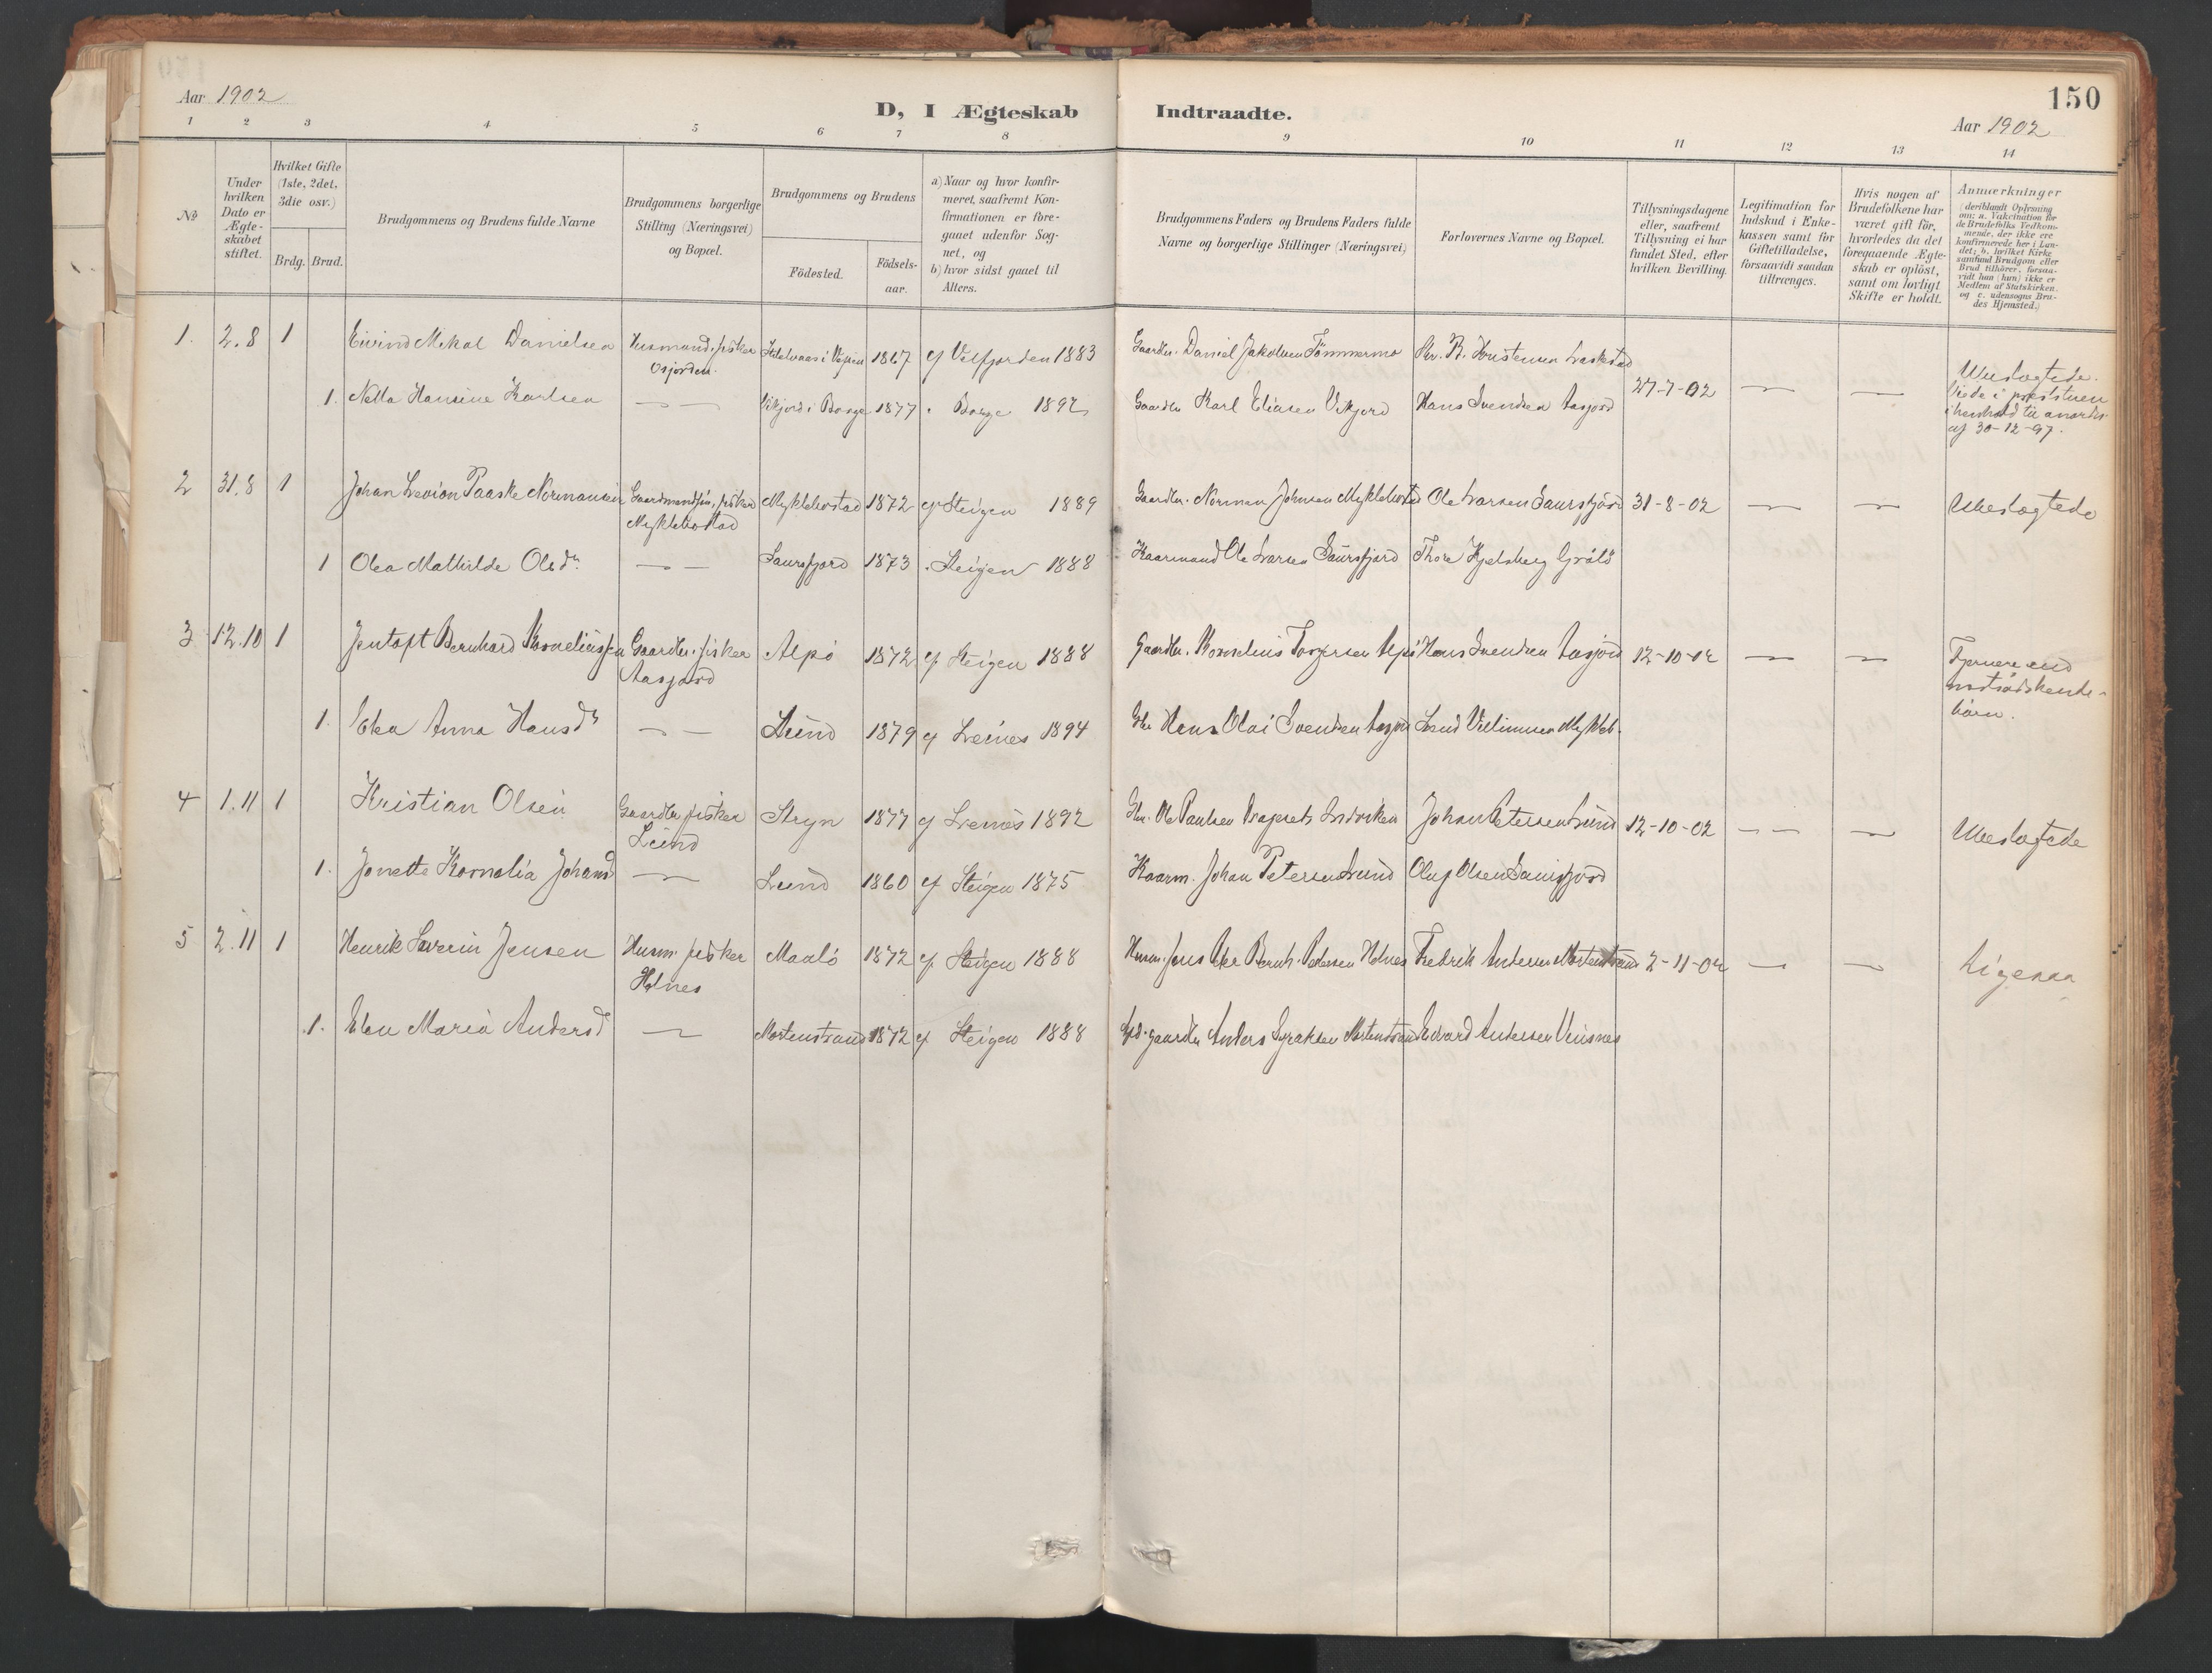 150
Aar 1902
D, I Ægteskab Indtraadte.
Aar 1902
1 2 3 4 5 6 7 8 9 10 11 12 13 14
No
Under hvilken Dato er Ægteskabet stiftet.
Hvilket Gifte (1ste, 2det, 3die osv.)
Brdg. Brud.
Brudgommens og Brudens fulde Navne
Brudgommens borgerlige Stilling (Næringsvei) og Bopæl.
Brudgommens og Brudens
Fødested.
Fødsels-aar.
a) Naar og hvor konfir-
meret, saafremt Kon-
firmationen er fore-
gaaet udenfor Sog-
net, og
b) hvor sidst gaaet til
Alters.
Brudgommens Faders og Brudens Faders fulde
Navne og borgerlige Stillinger (Næringsvei)
Forlovernes Navne og Bopæl.
Tillysningsdagene
eller, saafremt
Tillysning ei har
fundet Sted, efter
hvilken Bevilling.
Legitimation for
Indskud i Enke-
kassen samt for
Giftetilladelse,
forsaavidt saadan
tiltrænges.
Hvis nogen af
Brudefolkene har
været gift før,
hvorledes da det
foregaaende Ægte-
skab er opløst,
samt om lovligt
Skifte er holdt.
Anmærkninger
(deriblandt Oplysning
om: a. Vakcination for
de Brudefolks Vedkom-
mende, der ikke ere
konfirmerede her i Lan-
det; b. hvilket Kirke
samfund Brudgom eller
Brud tilhører, forsaa-
vidt han (hun) ikke er
Medlem af Statskirken,
og c. udensogns Bru-
des Hjemsted.)
1. 2.8 1 Eivind Mikal Danielsen Husmand, fisker 1867 af Velfjorden 1883 Gaardbr. Daniel Jakobsen Tømmermo
27-7-02 — — Ubeslægtede.
1. Netta Hansine Karlsen — — Vikjord i Borge 1877 " Borge 1892 Gaardbr Karl Eliasen Vikjord Hans Svendsen Aasjord
Viede i præstestuen
i henhold til anordn.
af 30-12-97.
2 31.8 1 Johan Levion Paaske Normansen Gaardmandssøn, fisker Myklebostad 1872 af Steigen 1889 Gaardbr. Norman Johnsen Myklebostad Ole Larsen Saursfjord 31-8-02 — — Ubeslægtede
Myklebostad
1 Olea Mathilde Olsdr — — Saursfjord 1873 " Steigen 1888 Kaarmand Ole Larsen Saursfjord Thore Kjelsberg Grøtø
3 12.10 1 Jentoft Bernhard Korneliussen Gaardbr. fisker Alpø 1872 af Steigen 1888 Gaardbr. Kornelius Torgersen Alpø Hans Svendsen Aasjord 12-10-02 — — Fjernere end
Aasjord
næstsødskende-
børn.
1. Elea Anna Hansdr — — Lund 1879 af Leines 1894 Gbr Hans Olai Svendsen Aasjord
4 1.11 1 Kristian Olsen Gaardbr fisker Stryn 1877 af Leines 1892 Gbr. Ole Paulsen Johan Petersen Lund 12-10-02 — — — Ubeslægtede
Lund
1. Jonette Kornelia Johansd — Lund 1860 af Steigen 1875 Kaarm. Johan Petersen Lund Oluf Olsen Saursfjord
5 2.11 1 Henrik Severin Jensen Husm. fisker Maalø 1872 af Steigen 1888 Husm. Jens Bernh. Pedersen Holnes Fredrik Andersen Mortenstrand 2-11-02 — — Ligesaa
Holnes
1. Elen Maria Andersd — Mortenstrand 1872 af Steigen 1888 gaardbr Anders Mortenstrand Edvard Andersen